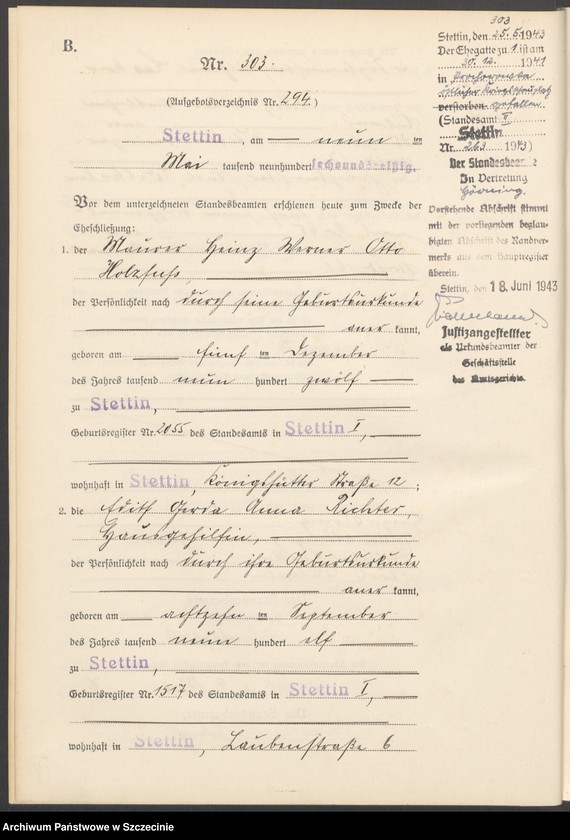 B.
Nr. 303.
(Aufgebotsverzeichnis Nr. 294.)
Stettin, am neun ten
Mai tausend neunhundert sechsunddreißig.
Vor dem unterzeichneten Standesbeamten erschienen heute zum Zwecke der
Eheschließung:
1. der Maurer Heinz Werner Otto
Holzfuß,
der Persönlichkeit nach durch seine Geburtsurkunde
aner kannt,
geboren am fünf ten Dezember
des Jahres tausend neun hundert zwölf
zu Stettin,
Geburtsregister Nr. 2055 des Standesamts in Stettin I,
wohnhaft in Stettin, Königshütter Straße 12;
2. die Edith Gerda Anna Richter,
Hausgehilfin,
der Persönlichkeit nach durch ihre Geburtsurkunde
aner kannt,
geboren am achtzehn ten September
des Jahres tausend neun hundert elf
zu Stettin,
Geburtsregister Nr. 1517 des Standesamts in Stettin I,
wohnhaft in Stettin, Laubenstraße 6
303
Stettin, den 25.5.1943
Der Ehegatte zu 1. ist am
30.12. 1941
in
östlicher Kriegsschauplatz
verstorben. gefallen
(Standesamt II
Stettin
Nr. 263 1943)
Der Standesbeamte
In Vertretung
Vorstehende Abschrift stimmt
mit der vorliegenden beglau-
bigten Abschrift des Randver-
merks aus dem Hauptregister
überein.
Stettin, den 18. Juni 1943
Justizangestellter
als Urkundsbeamter der
Geschäftsstelle
des Amtsgerichts.
Archiwum Państwowe w Szczecinie